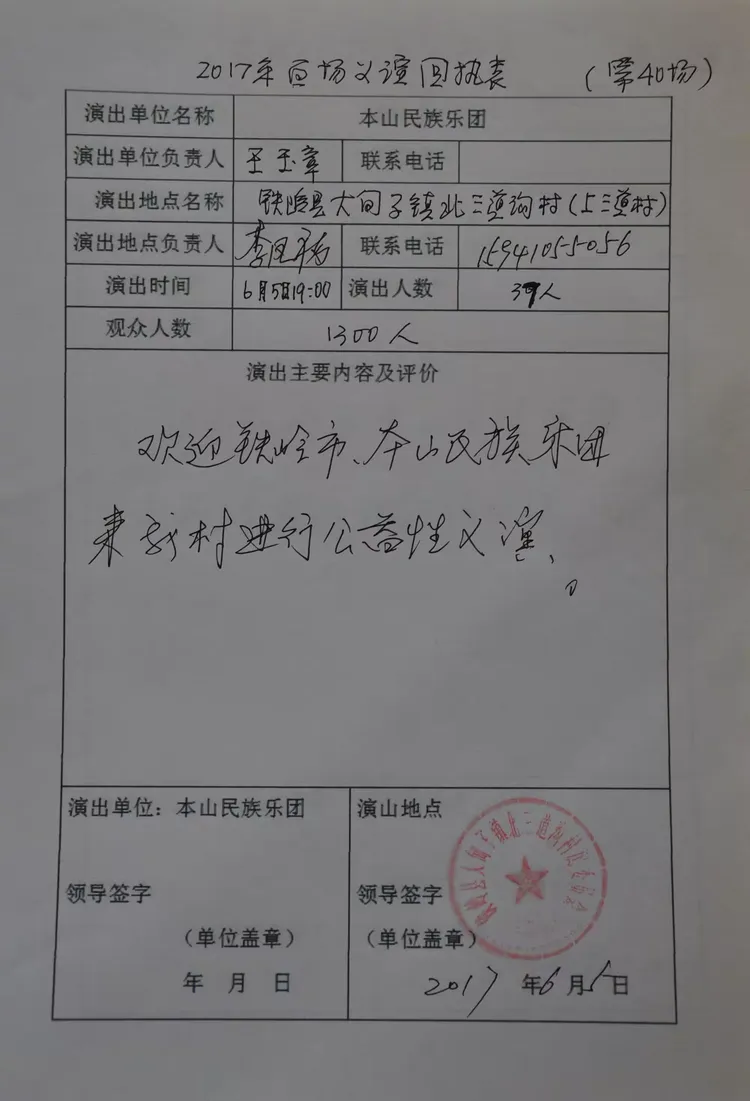 2017年百场义演回执表 (第40场)
演出单位名称 本山民族乐团
演出单位负责人 王玉章 联系电话
演出地点名称 铁岭县大甸子镇北三道沟村(上三道村)
演出地点负责人 李 联系电话 15941055056
演出时间 6月5日19:00 演出人数 39人
观众人数 1300人
演出主要内容及评价
欢迎铁岭市、本山民族乐团
来我村进行公益性义演、。
演出单位:本山民族乐团 演山地点
领导签字 领导签字
(单位盖章) (单位盖章)
年 月 日 2017 年6月5日
铁岭县大甸子镇北三道沟村民委员会